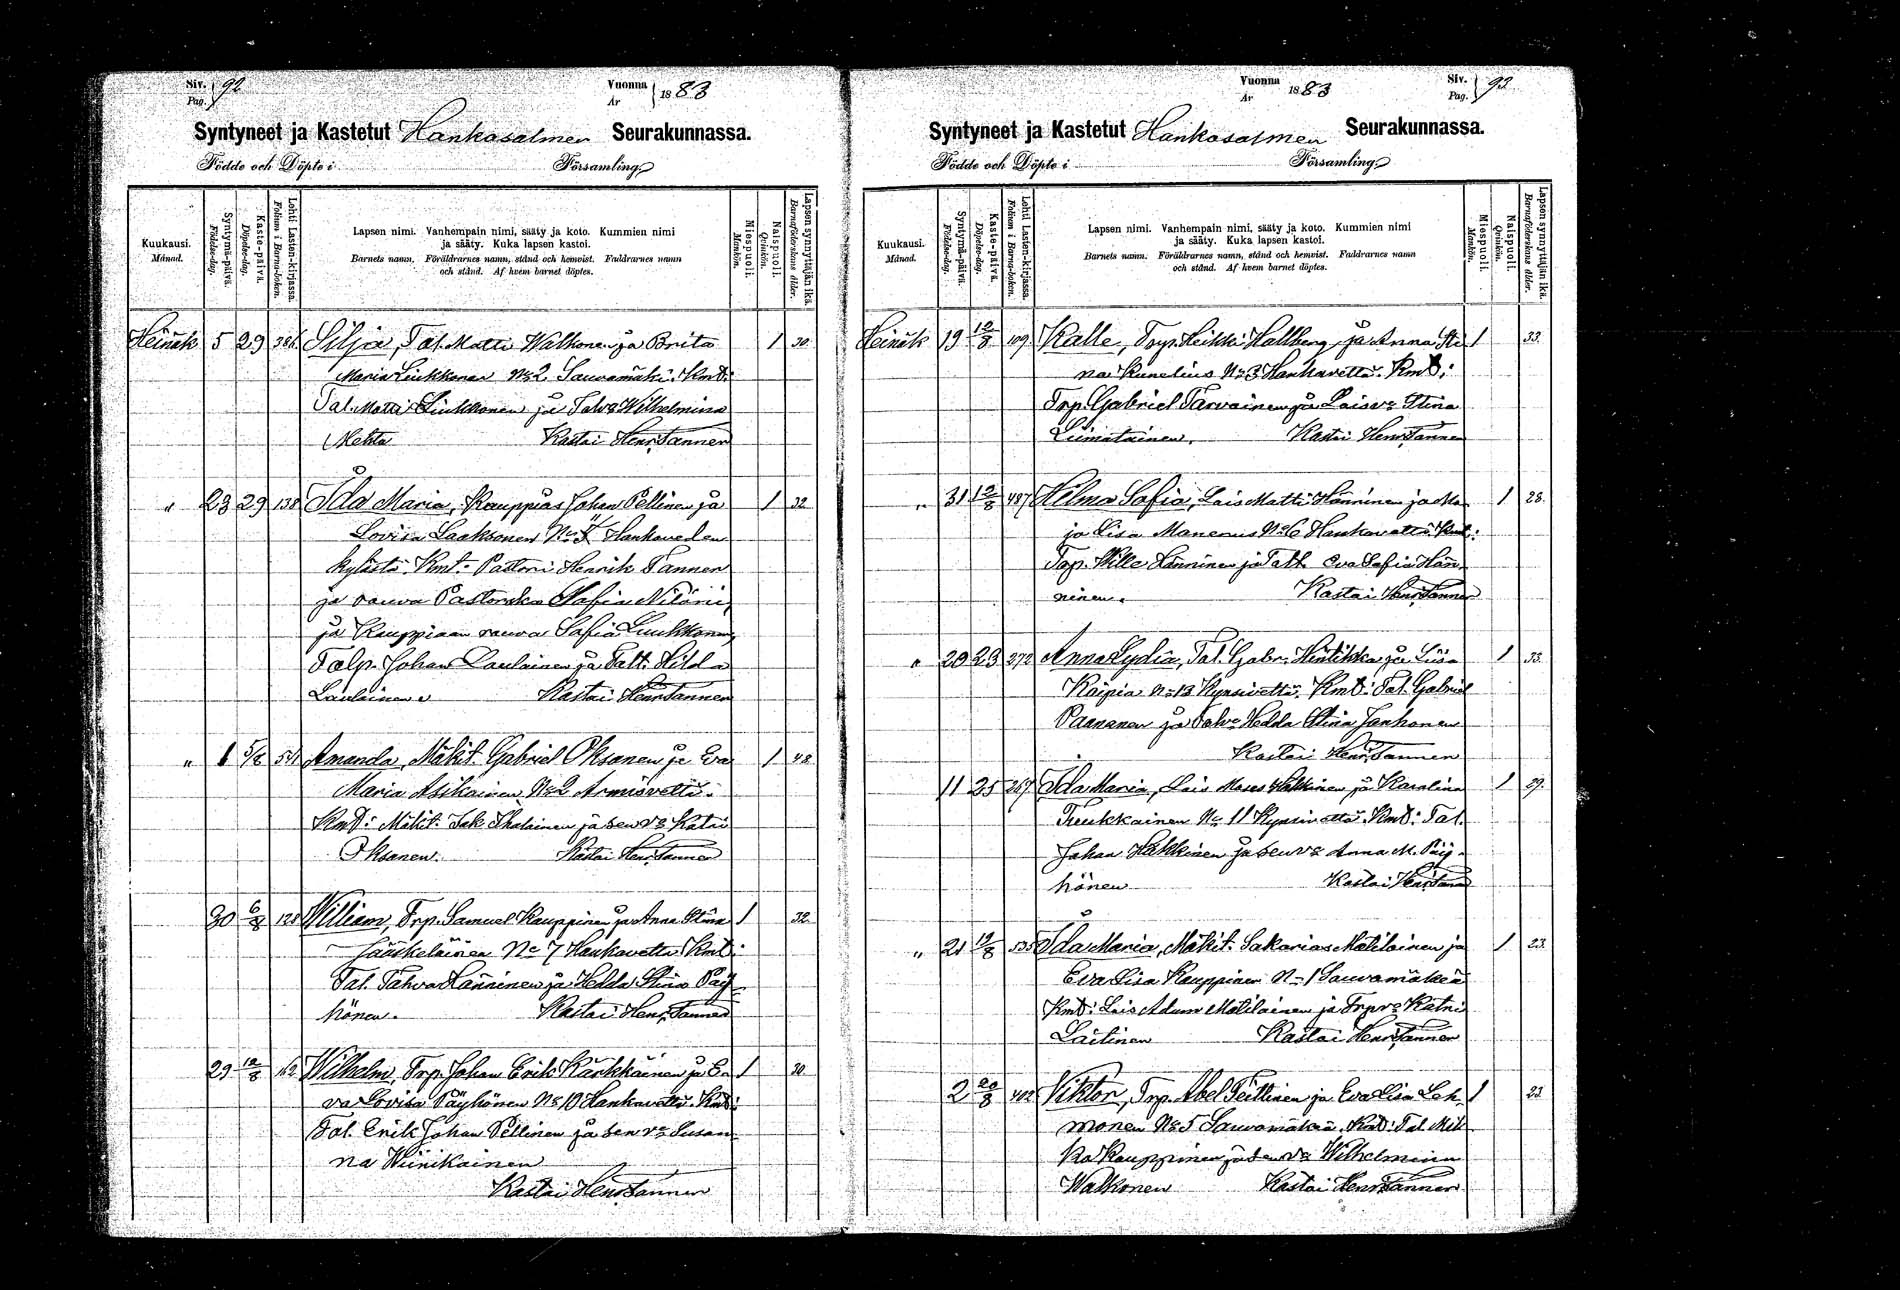 Siv. Pag. 92
Vuonna År 1883
Syntyneet ja Kastetut Hankasalmen Seurakunnassa.
Födde och Döpte i Församling.
Kuukausi. Månad.
Syntymä-päivä. Födelse-dag.
Kaste-päivä. Döpelse-dag.
Lehti Lasten-kirjassa. Folium i Barna-boken.
Lapsen nimi. Vanhempain nimi, sääty ja koto. Kummien nimi
ja sääty. Kuka lapsen kastoi.
Barnets namn. Föräldrarnes namn, stånd och hemvist. Faddrarnes namn
och stånd. Af hvem barnet döptes.
Miespuoli. Mankön.
Naispuoli. Qvinkön.
Lapsen synnyttäjän ikä. Barnaföderskans ålder.
Heinäk 5 29 386 Silja, Tal. Matti Walkonen ja Brita 1 30.
Maria Liukkonen No 2 Sauvamäki. Kmt:
Tal. Matti Liukkonen ja Talv: Wilhelmina
Mehto Kastai Henr. Tanner
" 23 29 138 Ida Maria, Kauppias Johan Pellinen ja 1 32
Lovisa Laaksonen No Hankaveden
kylästä. Kmt: Pastori Henrik Tanner
ja rouva Pastorska Sofia
ja Kauppiaan rouva Sofia Luukkonen,
Talp. Johan Laulainen ja Talt. Hilda
Laulainen Kastai Henr. Tanner
" 1 5/8 541 Amanda, Mäkit. Gabriel Oksanen ja Eva 1 48
Maria Asikainen No 2 Armisvettä.
Kmt: Mäkit. Isak Ihalainen ja sen v: Katri
Oksanen. Kastai Henr. Tanner
30 6/8 128 William, Trp. Samuel Kauppinen ja Anna Stina 1 32
Jääskeläinen No 7 Hankavettä. Kmt:
Tal. Tahvo Hänninen ja Hedda Stina Päy-
hönen. Kastai Henr. Tanner
29 12/8 162 Wilhelm, Trp. Johan Erik Kärkkäinen ja E- 1 30
va Lovisa Päyhönen No 10 Hankavettä. Kmt:
Tal. Erik Johan Pellinen ja sen v: Susan-
na Hiinikainen
Kastai Henr. Tanner
Vuonna År 1883
Siv. Pag. 93
Syntyneet ja Kastetut Hankasalmen Seurakunnassa.
Födde och Döpte i Församling.
Kuukausi. Månad.
Syntymä-päivä. Födelse-dag.
Kaste-päivä. Döpelse-dag.
Lehti Lasten-kirjassa. Folium i Barna-boken.
Lapsen nimi. Vanhempain nimi, sääty ja koto. Kummien nimi
ja sääty. Kuka lapsen kastoi.
Barnets namn. Föräldrarnes namn, stånd och hemvist. Faddrarnes namn
och stånd. Af hvem barnet döptes.
Miespuoli. Mankön.
Naispuoli. Qvinkön.
Lapsen synnyttäjän ikä. Barnaföderskans ålder.
Heinäk 19 12/8 109 Kalle, Trp. Heikki Hallberg ja Anna Sti- 1 33.
na Kunelius No 3 Hankavettä. Kmt:
Trp. Gabriel Tarvainen ja Laisv: Stina
Liimatainen. Kastai Henr. Tanner
" 31 12/8 487 Helma Sofia, Lais Matti Hänninen ja Ma- 1 28.
ja Lisa Manerus No 6 Hankavettä. Kmt:
Trp. Wille Hänninen ja Talt. Eva Sofia Hän-
ninen. Kastai Henr. Tanner
" 20 23 272 Anna Lydia, Tal. Gabr. Hintikka ja Liisa 1 33.
Kaipia No 13 Kynsivettä. Kmt: Tal. Gabriel
Paananen ja Talv: Hedda Stina Janhonen
Kastai Henr. Tanner
11 25 267 Ida Maria, Lais Moses Hakkinen ja Karolina 1 29.
Tuukkainen No 11 Kynsivettä. Kmt: Tal.
Johan Häkkinen ja sen v: Anna M. Päy-
hönen Kastai Henr. Tanner
" 21 19/8 535 Ida Maria, Mäkit. Sakarias Matilainen ja 1 23.
Eva Lisa Kauppinen No 1 Sauvamäkeä
Kmt: Lais Adam Matilainen ja Trp v: Katri
Laitinen Kastai Henr. Tanner
2 20/8 402 Viktor, Trp. Abel Teittinen ja Eva Lisa Leh- 1 23.
monen No 5 Sauvamäkeä. Kmt: Tal. Mik-
ko Kauppinen ja sen v: Wilhelmina
Walkonen Kastai Henr. Tanner